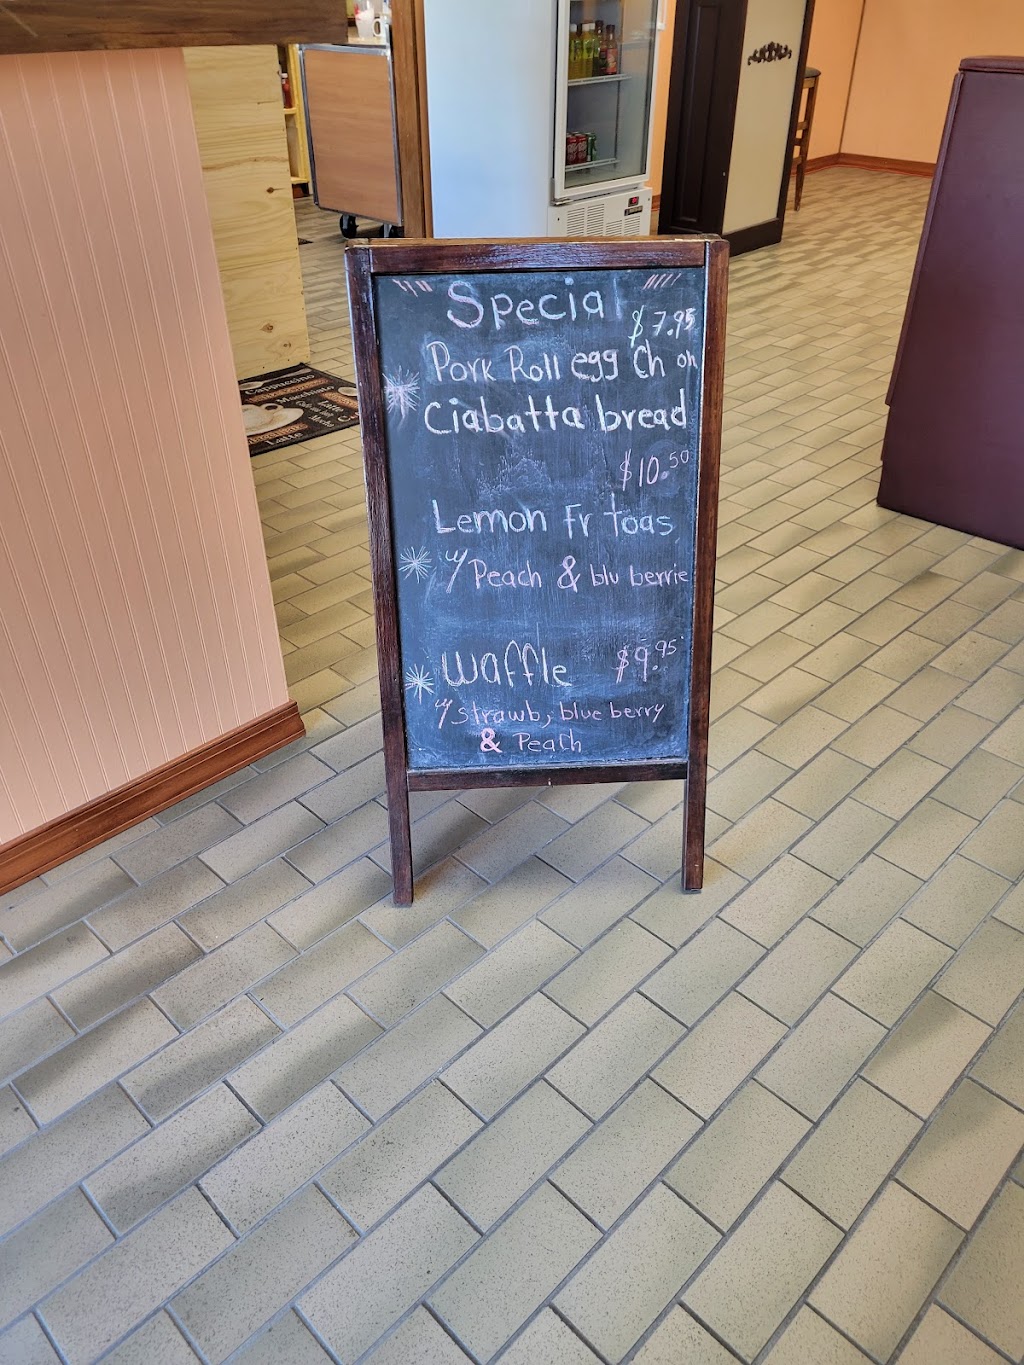 Special
$7.95
Pork Roll egg Ch on
Ciabatta bread
$10.50
Lemon Fr Toas
w/ Peach & blu berrie
Waffle $9.95
w/ Strawb, blue berry
& Peach
Cappuccino
Macchiato
Latte
Mocha
Latte